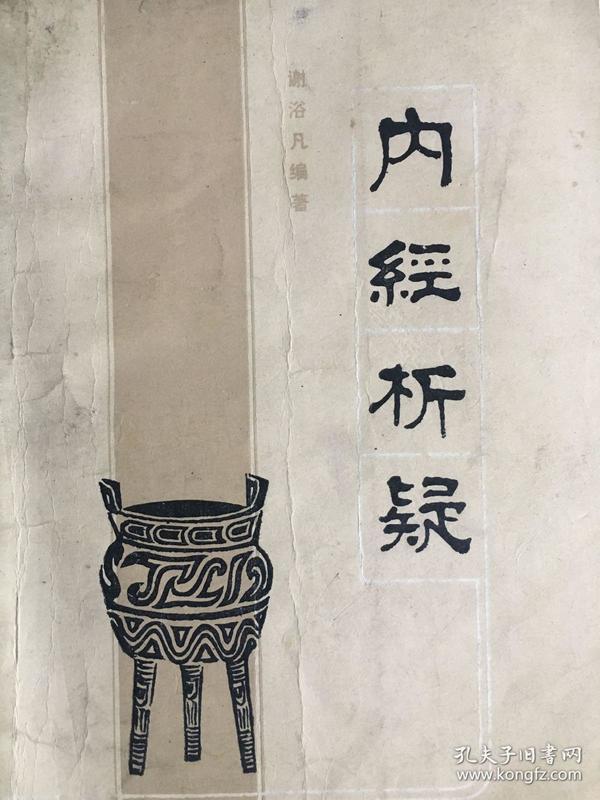 内經析疑
谢浴凡编著
孔夫子旧书网
www.kongfz.com